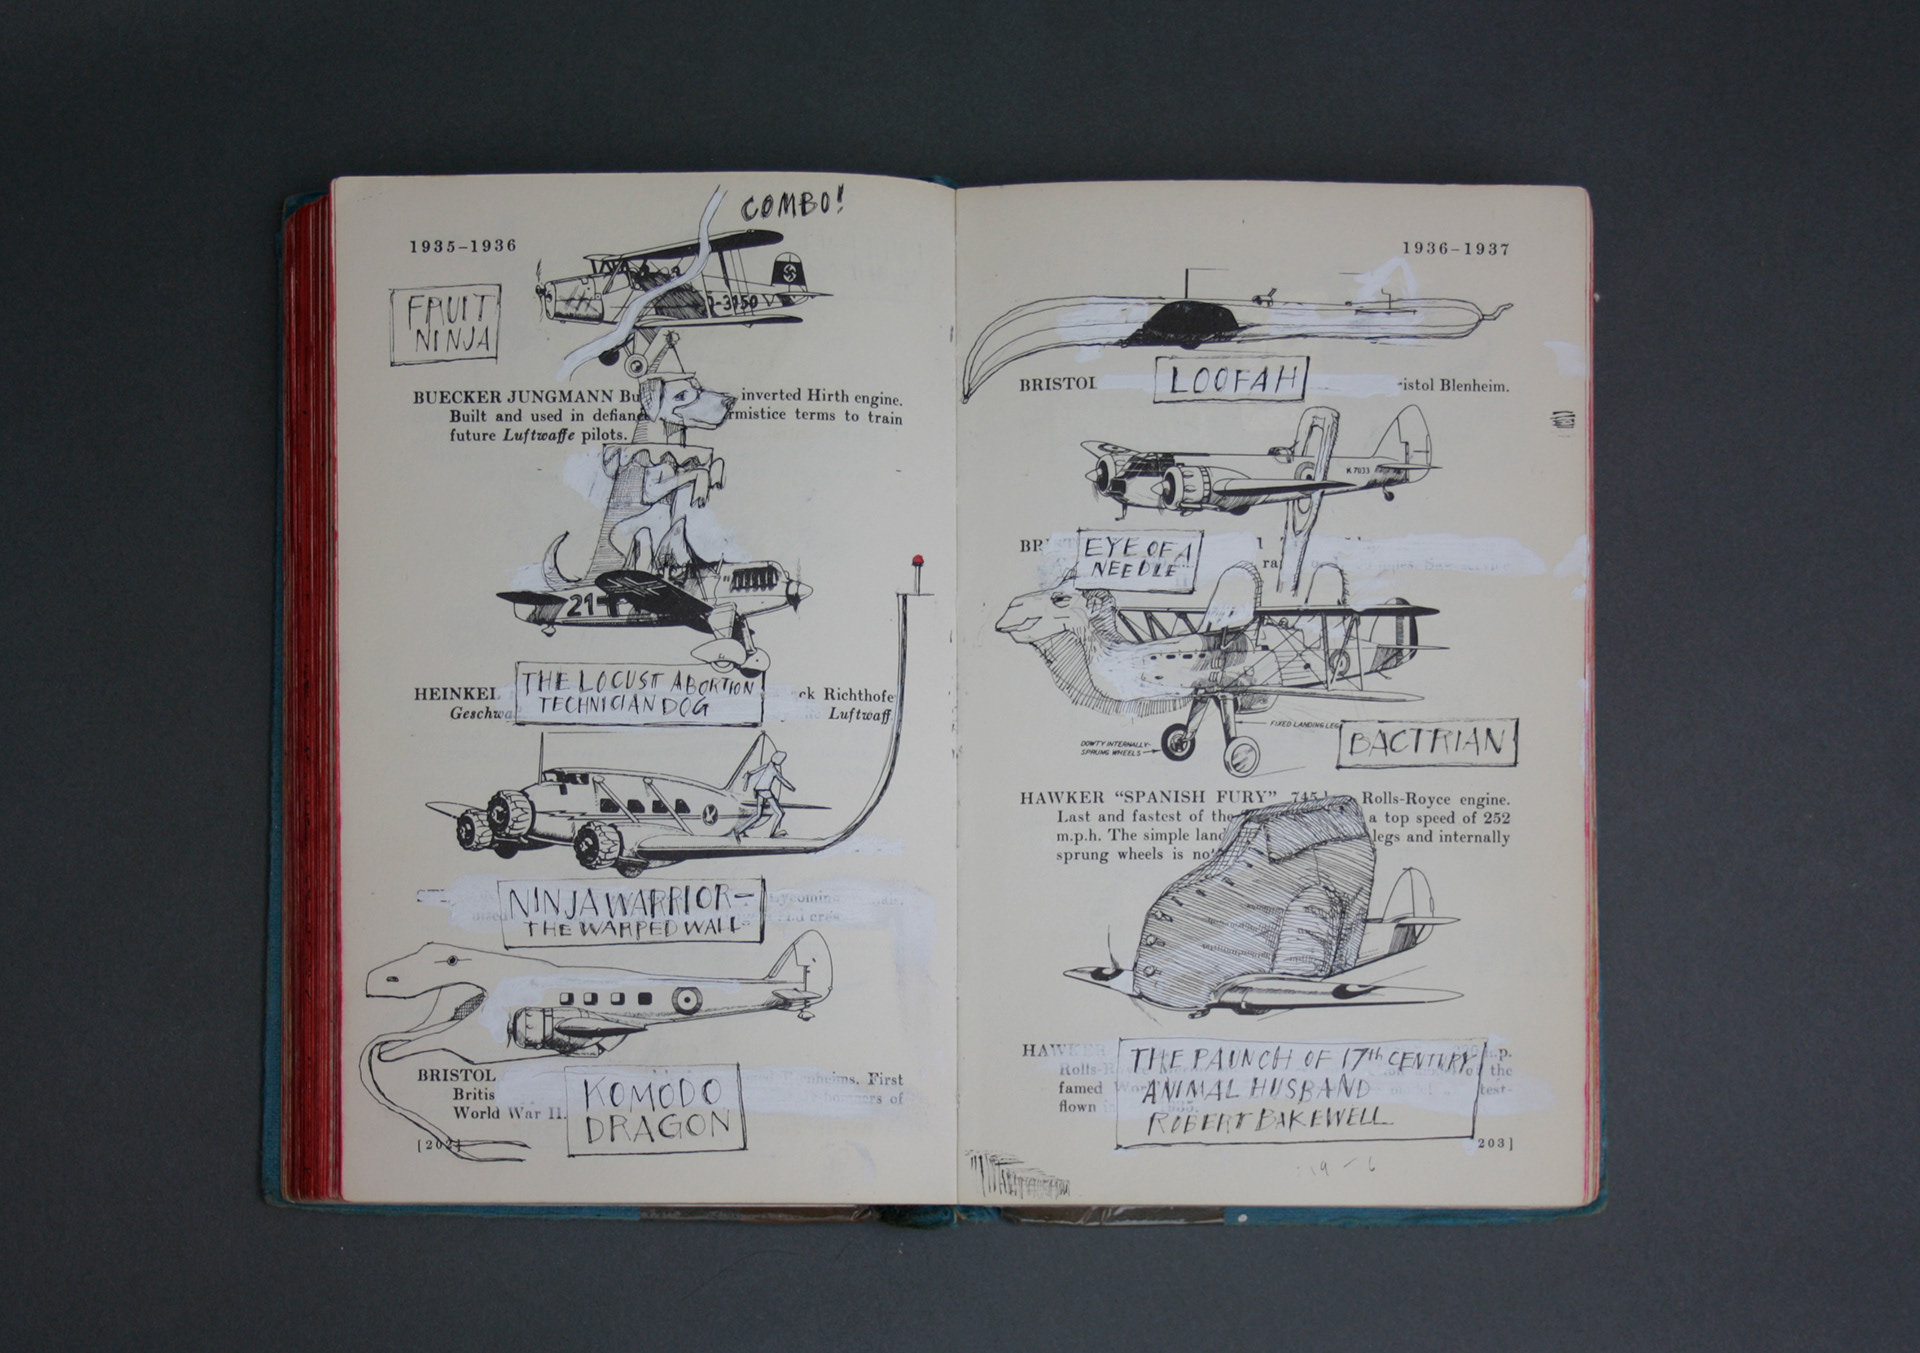 COMBO!
1935–1936
J-3150
FRUIT
NINJA
BUECKER JUNGMANN inverted Hirth engine.
Built and used in defiance rmistice terms to train
future Luftwaffe pilots.
21
THE LOCUST ABORTION
TECHNICIAN DOG
HEINKEL ck Richthofe
Geschwa Luftwaff
NINJA WARRIOR –
THE WARPED WALL
BRISTOL First
Britis of
World War II.
KOMODO
DRAGON
[202]
1936–1937
BRISTOL istol Blenheim.
LOOFAH
K 7033
EYE OF A
NEEDLE
FIXED LANDING LEG
DOWTY INTERNALLY-
SPRUNG WHEELS
BACTRIAN
HAWKER "SPANISH FURY" 745 Rolls-Royce engine.
Last and fastest of the a top speed of 252
m.p.h. The simple land legs and internally
sprung wheels is not
HAWKER .p.
Rolls-R of the
famed Wor test-
flown in
THE PAUNCH OF 17th CENTURY
ANIMAL HUSBAND
ROBERT BAKEWELL
203]